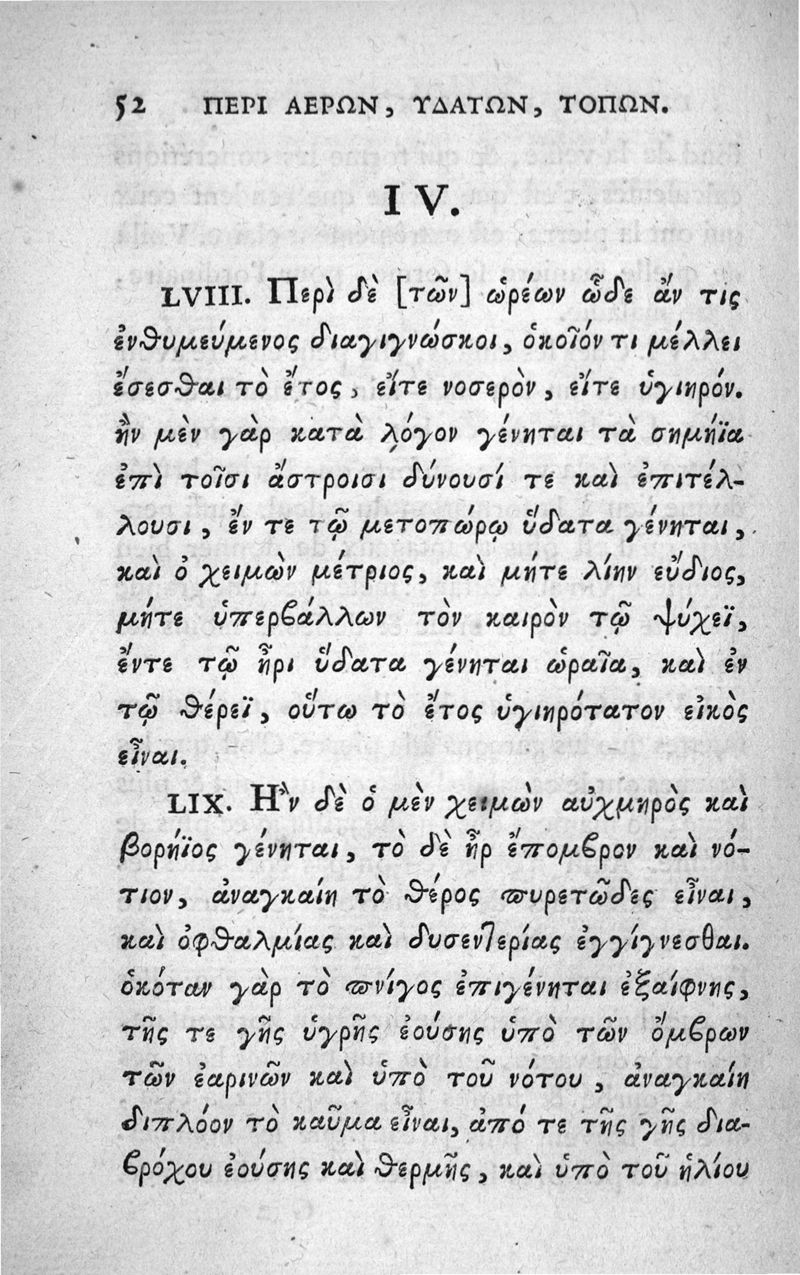 52 ΠΕΡΙ ΑΕΡΩΝ, ΥΔΑΤΩΝ, ΤΟΠΩΝ.
IV.
LVIII. Περὶ δὲ [τῶν] ὡρέων ὧδε ἄν τις
ἐνθυμεύμενος διαγιγνώσκοι, ὁκοῖόν τι μέλλει
ἔσεσθαι τὸ ἔτος, εἴτε νοσερὸν, εἴτε ὑγιηρόν.
ἢν μὲν γὰρ κατὰ λόγον γένηται τὰ σημήϊα
ἐπὶ τοῖσι ἄστροισι δύνουσί τε καὶ ἐπιτέλ-
λουσι, ἔν τε τῷ μετοπώρῳ ὕδατα γένηται,
καὶ ὁ χειμὼν μέτριος, καὶ μήτε λίην εὔδιος,
μήτε ὑπερβάλλων τὸν καιρὸν τῷ ψύχεϊ,
ἔντε τῷ ἦρι ὕδατα γένηται ὡραῖα, καὶ ἐν
τῷ θέρεϊ, οὕτω τὸ ἔτος ὑγιηρότατον εἰκὸς
εἶναι.
LIX. Ἢν δὲ ὁ μὲν χειμὼν αὐχμηρὸς καὶ
βορήϊος γένηται, τὸ δὲ ἦρ ἔπομβρον καὶ νό-
τιον, ἀναγκαίη τὸ θέρος πυρετῶδες εἶναι,
καὶ ὀφθαλμίας καὶ δυσεντερίας ἐγγίγνεσθαι.
ὁκόταν γὰρ τὸ πνίγος ἐπιγένηται ἐξαίφνης,
τῆς τε γῆς ὑγρῆς ἐούσης ὑπὸ τῶν ὄμβρων
τῶν ἐαρινῶν καὶ ὑπὸ τοῦ νότου, ἀναγκαίη
διπλόον τὸ καῦμα εἶναι, ἀπό τε τῆς γῆς δια-
βρόχου ἐούσης καὶ θερμῆς, καὶ ὑπὸ τοῦ ἡλίου